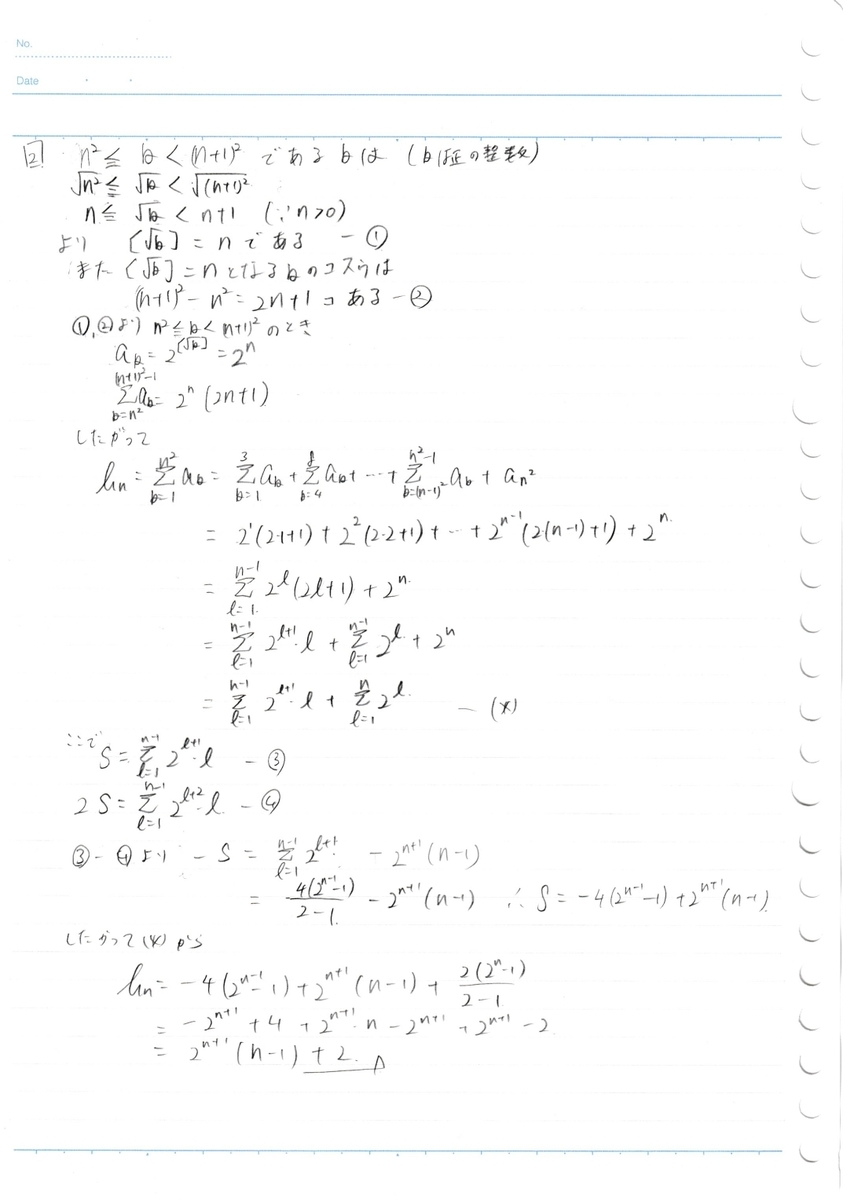 No.
Date
[2] n² ≦ k < (n+1)² である kは (kは正の整数)
√n² ≦ √k < √(n+1)²
n ≦ √k < n+1 (∵ n>0)
より [√k] = n である — ①
また [√k] = n となる k のコスウは
(n+1)² - n² = 2n+1 コ ある — ②
①, ②より n² ≦ k < (n+1)² のとき
a_k = 2^[√k] = 2^n
Σ_{k=n²}^{(n+1)²-1} a_k = 2^n (2n+1)
したがって
b_n = Σ_{k=1}^{n²} a_k = Σ_{k=1}^{3} a_k + Σ_{k=4}^{8} a_k + … + Σ_{k=(n-1)²}^{n²-1} a_k + a_{n²}
= 2¹(2·1+1) + 2²(2·2+1) + … + 2^{n-1}(2(n-1)+1) + 2^n
= Σ_{l=1}^{n-1} 2^l (2l+1) + 2^n
= Σ_{l=1}^{n-1} 2^{l+1}·l + Σ_{l=1}^{n-1} 2^l + 2^n
= Σ_{l=1}^{n-1} 2^{l+1}·l + Σ_{l=1}^{n} 2^l — (*)
ここで S = Σ_{l=1}^{n-1} 2^{l+1}·l — ③
2S = Σ_{l=1}^{n-1} 2^{l+2}·l — ④
③ - ④ より - S = Σ_{l=1}^{n-1} 2^{l+1} - 2^{n+1}(n-1)
= 4(2^{n-1}-1)/(2-1) - 2^{n+1}(n-1) ∴ S = -4(2^{n-1}-1) + 2^{n+1}(n-1)
したがって (*) から
b_n = -4(2^{n-1}-1) + 2^{n+1}(n-1) + 2(2^n-1)/(2-1)
= -2^{n+1} + 4 + 2^{n+1}·n - 2^{n+1} + 2^{n+1} - 2
= 2^{n+1}(n-1) + 2